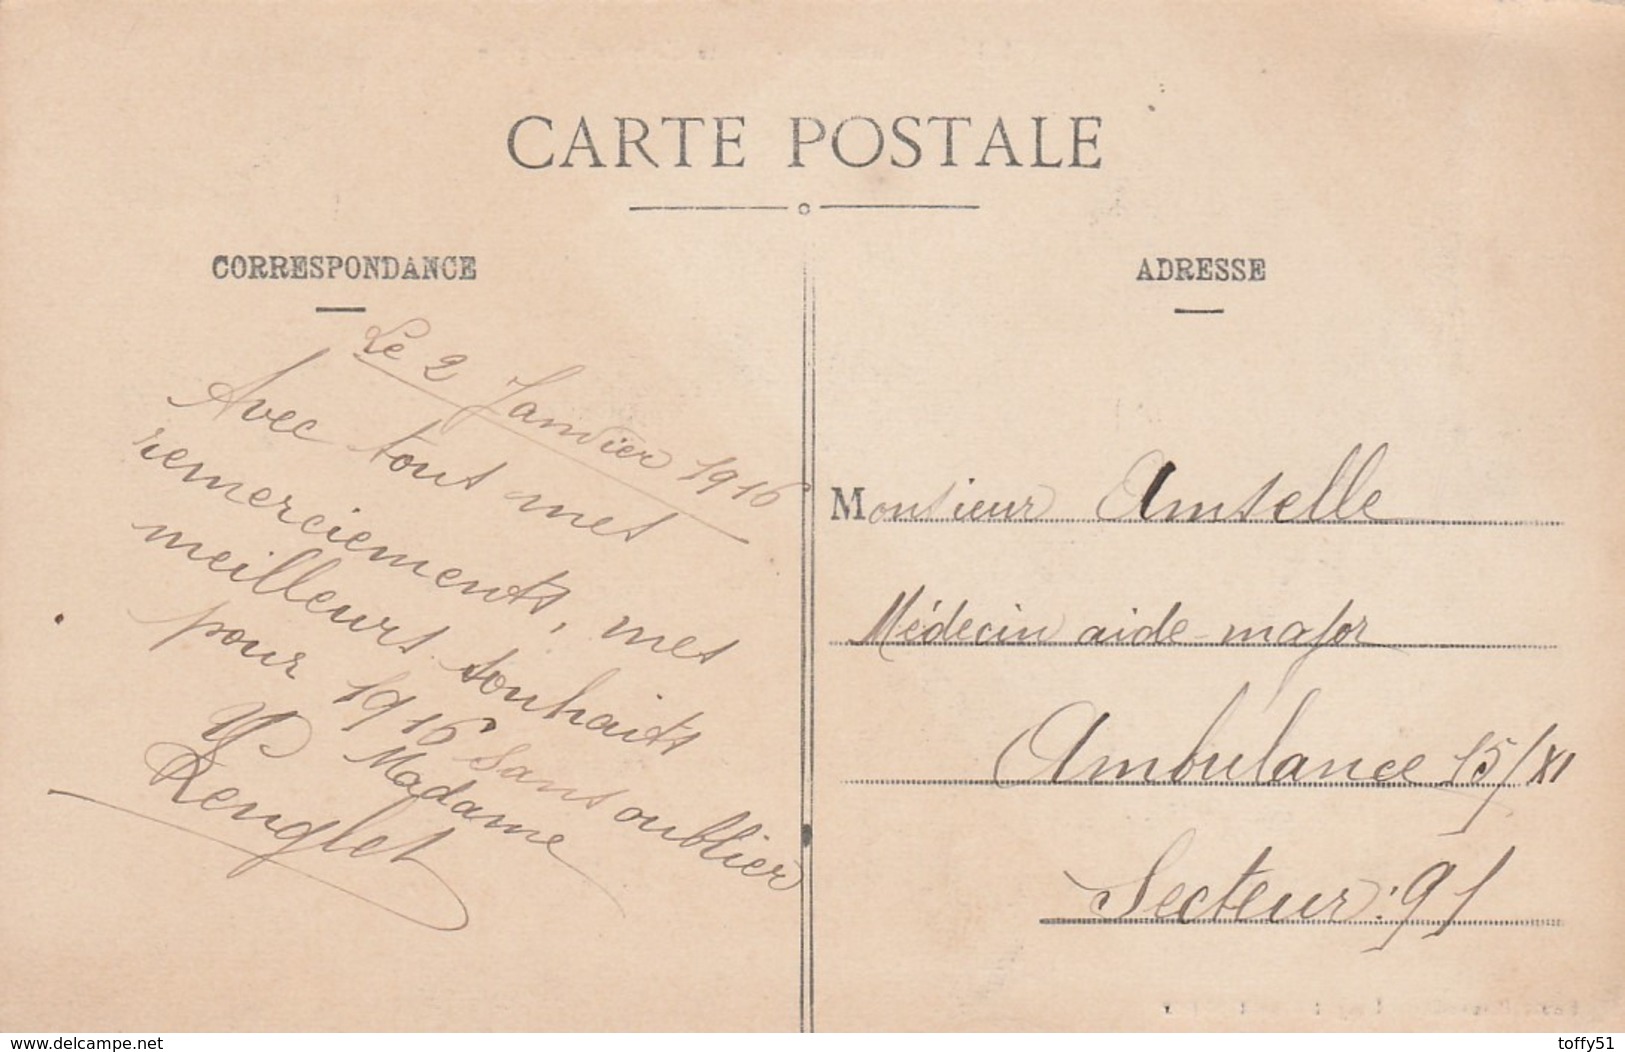 CARTE POSTALE
CORRESPONDANCE
Le 2 Janvier 1916
Avec tout mes
remerciements, mes
meilleurs souhaits
pour 1916 Sans oublier
Madame
Lenglet
ADRESSE
Monsieur Amselle
Médecin aide-major
Ambulance 15/XI
Secteur: 91
www.delcampe.net
toffy51